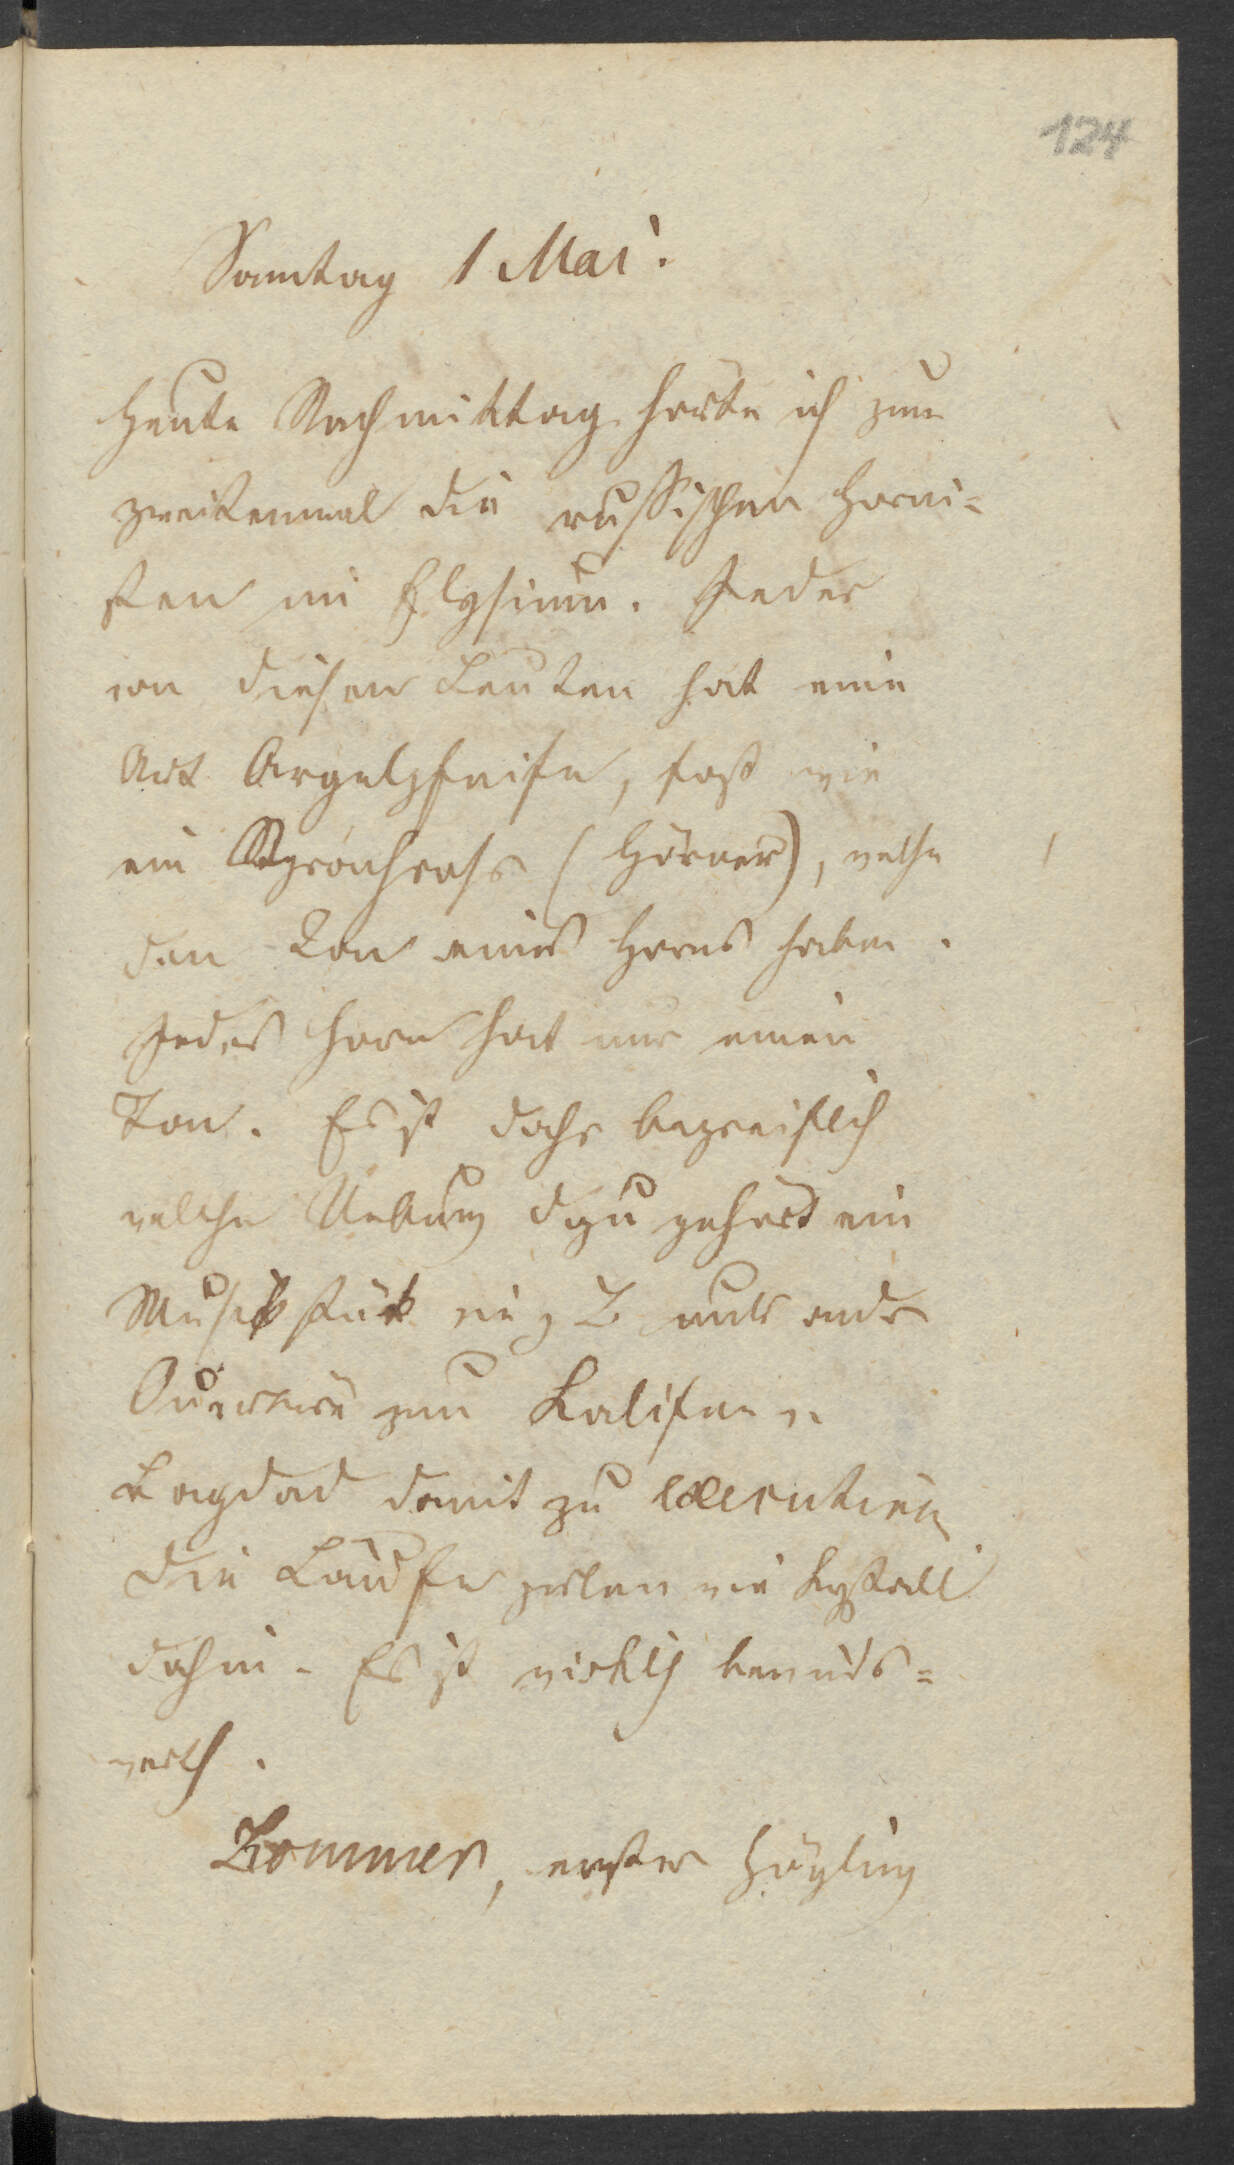 124
Sonntag 1 Mai.
Heute Nachmittag hörte ich zum
zweitenmal die russischen Horni-
sten im Elysium. Jeder
von diesen Leuten hat eine
Art Orgelpfeife, fast wie
ein Sprachrohr (Hörner), welche
den Ton eines Horns haben.
Jedes Horn hat nur einen
Ton. Es ist daher begreiflich
welche Uebung dazu gehört ein
Musikstück wie z B unter andr
Ouverture zum Kalifen v.
Bagdad damit zu
Die Läufe perlen wie Krystall
dahin. Es ist wirklich
werth.
erster Zögling